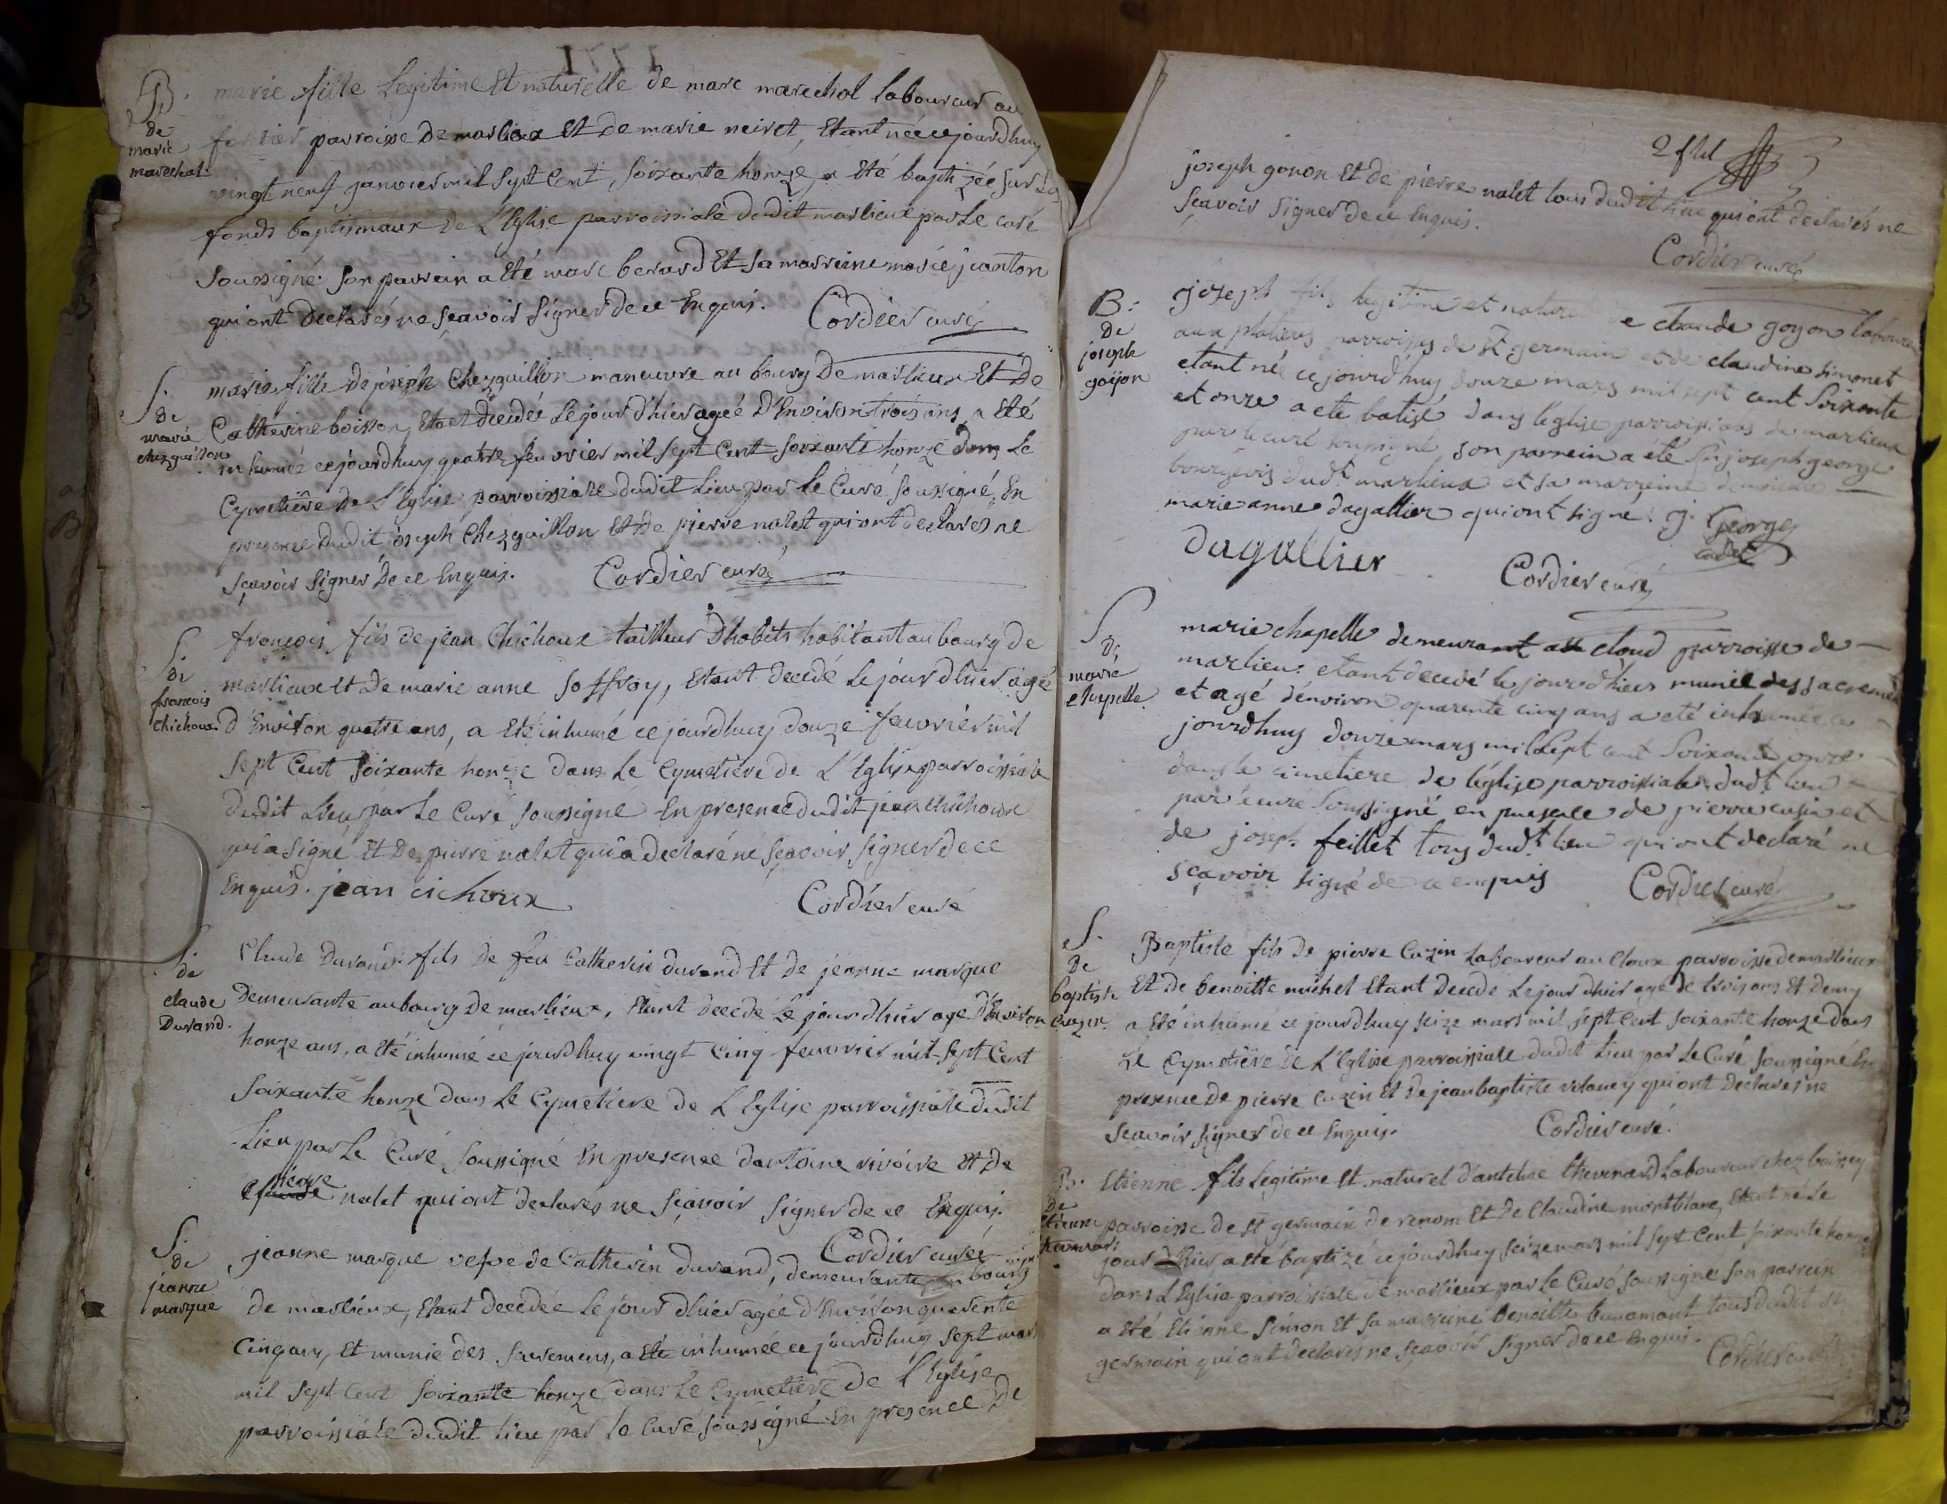 B.
de
marie
marechal
marie fille Legitime Et naturelle de marc marechal laboureur au
parroisse De marlieux Et de marie neiret, Etant née ce jourdhuy
vingt neuf janvier mil sept Cent, soixante honze a Eté baptizée sur les
fonds baptismaux de L'Eglise parroissiale dudit marlieux par Le curé
soussigné. son parrein a Eté marc berard Et sa marreine marie jeanton
qui ont Declarés ne sçavoir signer de ce Enquis. Cordier curé
S.
de
marie
chezguillon
marie fille de joseph Chezguillon manœuvre au bourg De marlieux Et De
Catherine boisson, Etant decedée Le jour d'hier ageé D'Environ trois ans, a Eté
inhumée ce jourdhuy quatre fevrier mil sept Cent soixante honze dans Le
Cymetiére de L'Eglise parroissiale dudit Lieu par Le Curé soussigné, En
presence dudit joseph Chezguillon Et De pierre nalet qui ont declarés ne
sçavoir signer De ce Enquis. Cordier curé
S.
de
francois
chichoux
francois fils de jean Chichoux tailleur D'habits habitant au bourg de
marlieux Et De marie anne Joffroy, Etant Decedé Le jour d'hier agé
D'Environ quatre ans, a Eté inhumé ce jourdhuy douze fevrier mil
sept Cent soixante honze dans Le Cymetiére de L'Eglise parroissiale
dudit Lieu par Le Curé soussigné En presence dudit jean chichoux
qui a signé Et De pierre nalet qui a Declaré ne sçavoir signer De ce
Enquis. jean cichoux Cordier curé
S.
de
claude
Durand.
Claude Durand fils de feu Catherin durand Et de jeanne marque
Demeurante au bourg de marlieux, Etant decedé Le jour d'hier agé d'Environ
honze ans, a Eté inhumé ce jourdhuy vingt Cinq fevrier mil sept Cent
soixante honze dans Le Cymetiére de L'Eglise parroissiale dudit
Lieu par Le Curé soussigné En presence dantoine riviére Et de
pierre
claude nalet qui ont declarés ne sçavoir signer de ce Enquis.
Cordier curé
S.
de
jeanne
marque
jeanne marque vefve de Catherin durand, demeurante au bourg
de marlieux, Etant Decedée Le jour d'hier agée d'Environ quarente
Cinq ans, Et munie des sacremens, a Eté inhumée ce jourdhuy sept mars
mil sept Cent soixante honze dans Le Cymetiére de L'Eglise
parroissiale dudit Lieu par Le Curé soussigné En presence De
joseph gonon Et de pierre nalet tous dudit Lieu qui ont declarés ne
sçavoir signer de ce Enquis.
Cordier curé
B.
De
joseph
goyon
joseph fils legitime et naturel de claude goyon laboureur
aux parroisse de St germain et de claudine simonet
etant né ce jourdhuy douze mars mil sept cent soixante
et onze a eté batisé dans l'église parroissiale de marlieux
par le curé soussigné, son parrein a eté Sr joseph george
bourgeois dudt. marlieux et sa marreine demoiselle
marie anne dagallier qui ont signé. J. George
cadet
dagallier Cordier curé
S.
De
marie
chapelle
marie chapelle demeurant au cloud parroisse de
marlieux etant decedé le jour d'hier munie des sacremens
et agé d'environ quarente cinq ans a eté inhumée ce
jourdhuy douze mars mil sept cent soixante onze
dans le cimetiere de l'église parroissiale dudt. lieu
par le curé soussigné en presence de pierre cusin et
de joseph feillet tous dudt. lieu qui ont declaré ne
sçavoir signé de ce enquis Cordier curé
S.
De
baptiste
Cuzin
Baptiste fils De pierre Cuzin Laboureur au Cloux parroisse de marlieux
Et de benoitte michel Etant Decedé Le jour d'hier agé de trois ans Et demy
a Eté inhumé ce jourdhuy seize mars mil sept Cent soixante honze dans
Le Cymetiére de L'Eglise parroissiale dudit Lieu par Le Curé soussigné En
presence De pierre Cuzin Et de jean baptiste velancy qui ont Declarés ne
sçavoir signer de ce Enquis. Cordier curé.
B.
De
Etienne
thevenard
Etienne fils Legitime Et naturel d'antelme thevenard Laboureur chez
parroisse de St germain de renom Et De Claudine montblanc, Etant né Le
jour d'hier a Eté baptizé ce jourdhuy seize mars mil sept Cent soixante honze
dans L'Eglise parroissiale de marlieux par Le Curé soussigné son parrein
a Eté Etienne simon Et sa marreine benoitte tous dudit St
germain qui ont declarés ne sçavoir signer de ce Enquis. Cordier curé